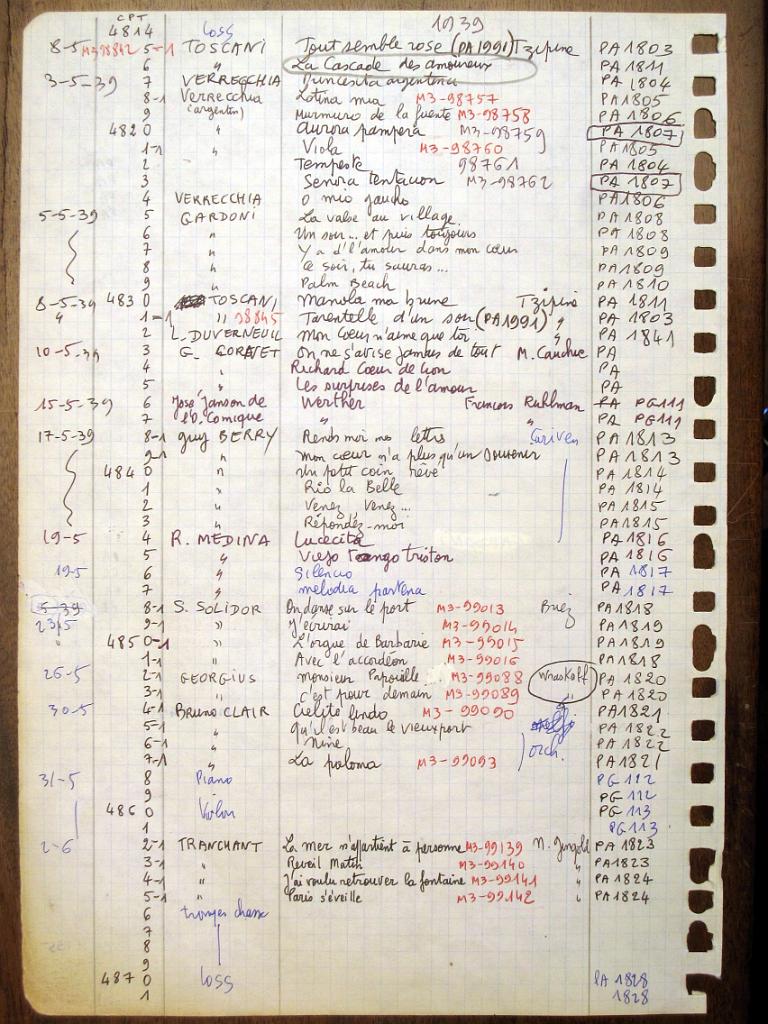 CPT
4814 Loss 1939
8-5 M3 98842 5-1 TOSCANI Tout semble rose (PA1991) Tzipine PA 1803
6 " La Cascade des amoureux PA 1811
3-5-39 7 VERRECCHIA Princesita argentina PA 1804
8-1 Verrecchia Lotina mia M3-98757 PA1805
9 (argentin) Murmuro de la fuente M3-98758 PA 1806
4820 " Aurora pampera M3-98759 PA 1807
1-1 " Viola M3-98760 PA1805
2 Tempeste 98761 PA 1804
3 Senoia tentacion M3-98762 PA 1807
4 VERRECCHIA O mio gaucho PA1806
5-5-39 5 GARDONI La valse au village PA 1808
6 " Un soir... et puis toujours PA 1808
7 " Y a d'l'amour dans mon cœur PA 1809
8 " Ce soir, tu sauras... PA1809
9 " Palm Beach PA 1810
8-5-39 4830 TOSCANI Manola ma brune Tzipine PA 1811
" 1-1 " 98845 Tarentelle d'un soir (PA1991) " PA 1803
2 L. DUVERNEUIL Mon Cœur n'aime que toi " PA 1841
10-5-39 3 G. On ne s'avise jamais de tout M. Cauchie PA
4 " Richard Cœur de Lion PA
5 " Les surprises de l'amour PA
15-5-39 6 José Janson de Werther François Ruhlman PA PG111
7 l'O. Comique " " PA PG111
17-5-39 8-1 Guy BERRY Rends moi mes lettres Cariven PA 1813
9-1 " Mon cœur n'a plus qu'un souvenir PA 1813
4840 " Un petit coin rêvé PA 1814
1 " Rio la Belle PA 1814
2 " Venez, Venez... PA1815
3 " Répondez-moi PA1815
19-5 4 R. MEDINA Lucecita PA 1816
5 " Viejo Tango triston PA 1816
19-5 6 " Silencio PA 1817
7 " melodia portena PA 1817
5-39 8-1 S. SOLIDOR On danse sur le port M3-99013 Briez PA1818
23/5 9-1 " J'écrirai M3-99014 PA1819
" 4850-1 " L'orgue de Barbarie M3-99015 PA1819
1-1 " Avec l'accordéon M3-99016 PA1818
26-5 2-1 GEORGIUS Monsieur Papouille M3-99088 Wraskoff PA 1820
3-1 " C'est pour demain M3-99089 " PA 1820
30-5 4-1 Bruno CLAIR Cielito lindo M3-99090 PA1821
5-1 " Qu'il est beau le vieux port PA 1822
6-1 " Nine orch. PA 1822
7-1 " La paloma M3-99093 PA1821
31-5 8 Piano PG 112
9 PG 112
4860 Violon PG 113
1 PG 113
2-6 2-1 TRANCHANT La mer n'appartient à personne M3-99139 PA 1823
3-1 " Reveil Matin M3-99140 " PA1823
4-1 " J'ai voulu retrouver la fontaine M3-99141 " PA 1824
5-1 " Paris s'éveille M3-99142 " PA 1824
6 trompes chasse
7
8
9
4870 Loss PA 1828
1 1828